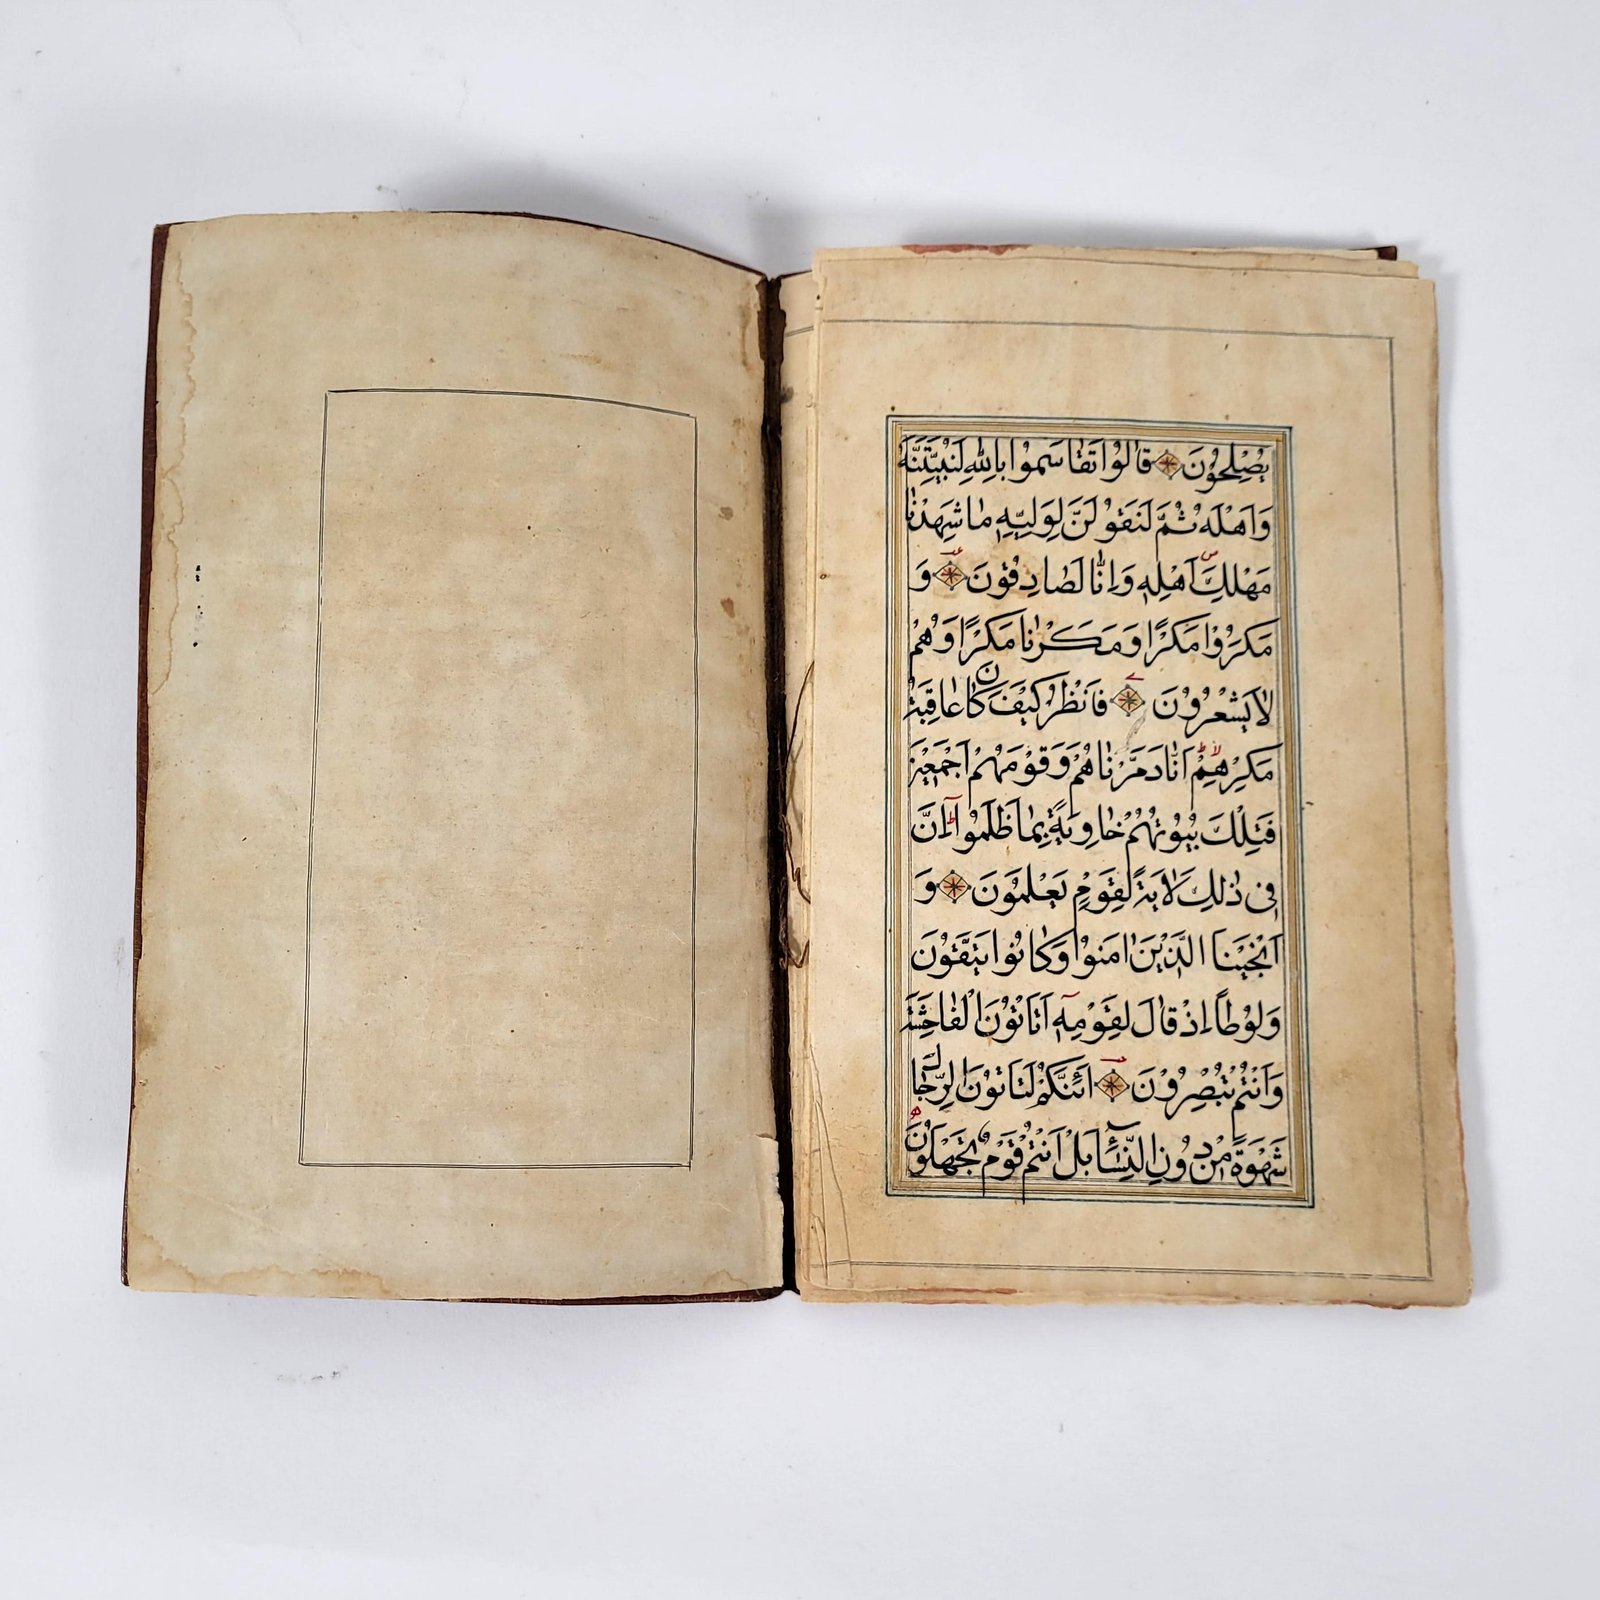 يُصْلِحُونَ قَالُوا تَقَاسَمُوا بِاللهِ لَنُبَيِّتَنَّهُ
وَاَهْلَهُ ثُمَّ لَنَقُولَنَّ لِوَلِيِّهِ مَا شَهِدْنَا
مَهْلِكَ اَهْلِهِ وَاِنَّا لَصَادِقُونَ وَ
مَكَرُوْا مَكْرًا وَمَكَرْنَا مَكْرًا وَهُمْ
لَا يَشْعُرُوْنَ فَانْظُرْ كَيْفَ كَانَ عَاقِبَةُ
مَكْرِهِمْ اَنَّا دَمَّرْنَاهُمْ وَقَوْمَهُمْ اَجْمَعِيْنَ
فَتِلْكَ بُيُوْتُهُمْ خَاوِيَةً بِمَا ظَلَمُوْا اِنَّ
فِى ذٰلِكَ لَاٰيَةً لِقَوْمٍ يَعْلَمُوْنَ وَ
اَنْجَيْنَا الَّذِيْنَ اٰمَنُوْا وَكَانُوْا يَتَّقُوْنَ
وَلُوْطًا اِذْ قَالَ لِقَوْمِهِ اَتَاْتُوْنَ الْفَاحِشَةَ
وَاَنْتُمْ تُبْصِرُوْنَ اَئِنَّكُمْ لَتَاْتُوْنَ الرِّجَالَ
شَهْوَةً مِنْ دُوْنِ النِّسَآءِ بَلْ اَنْتُمْ قَوْمٌ تَجْهَلُوْنَ